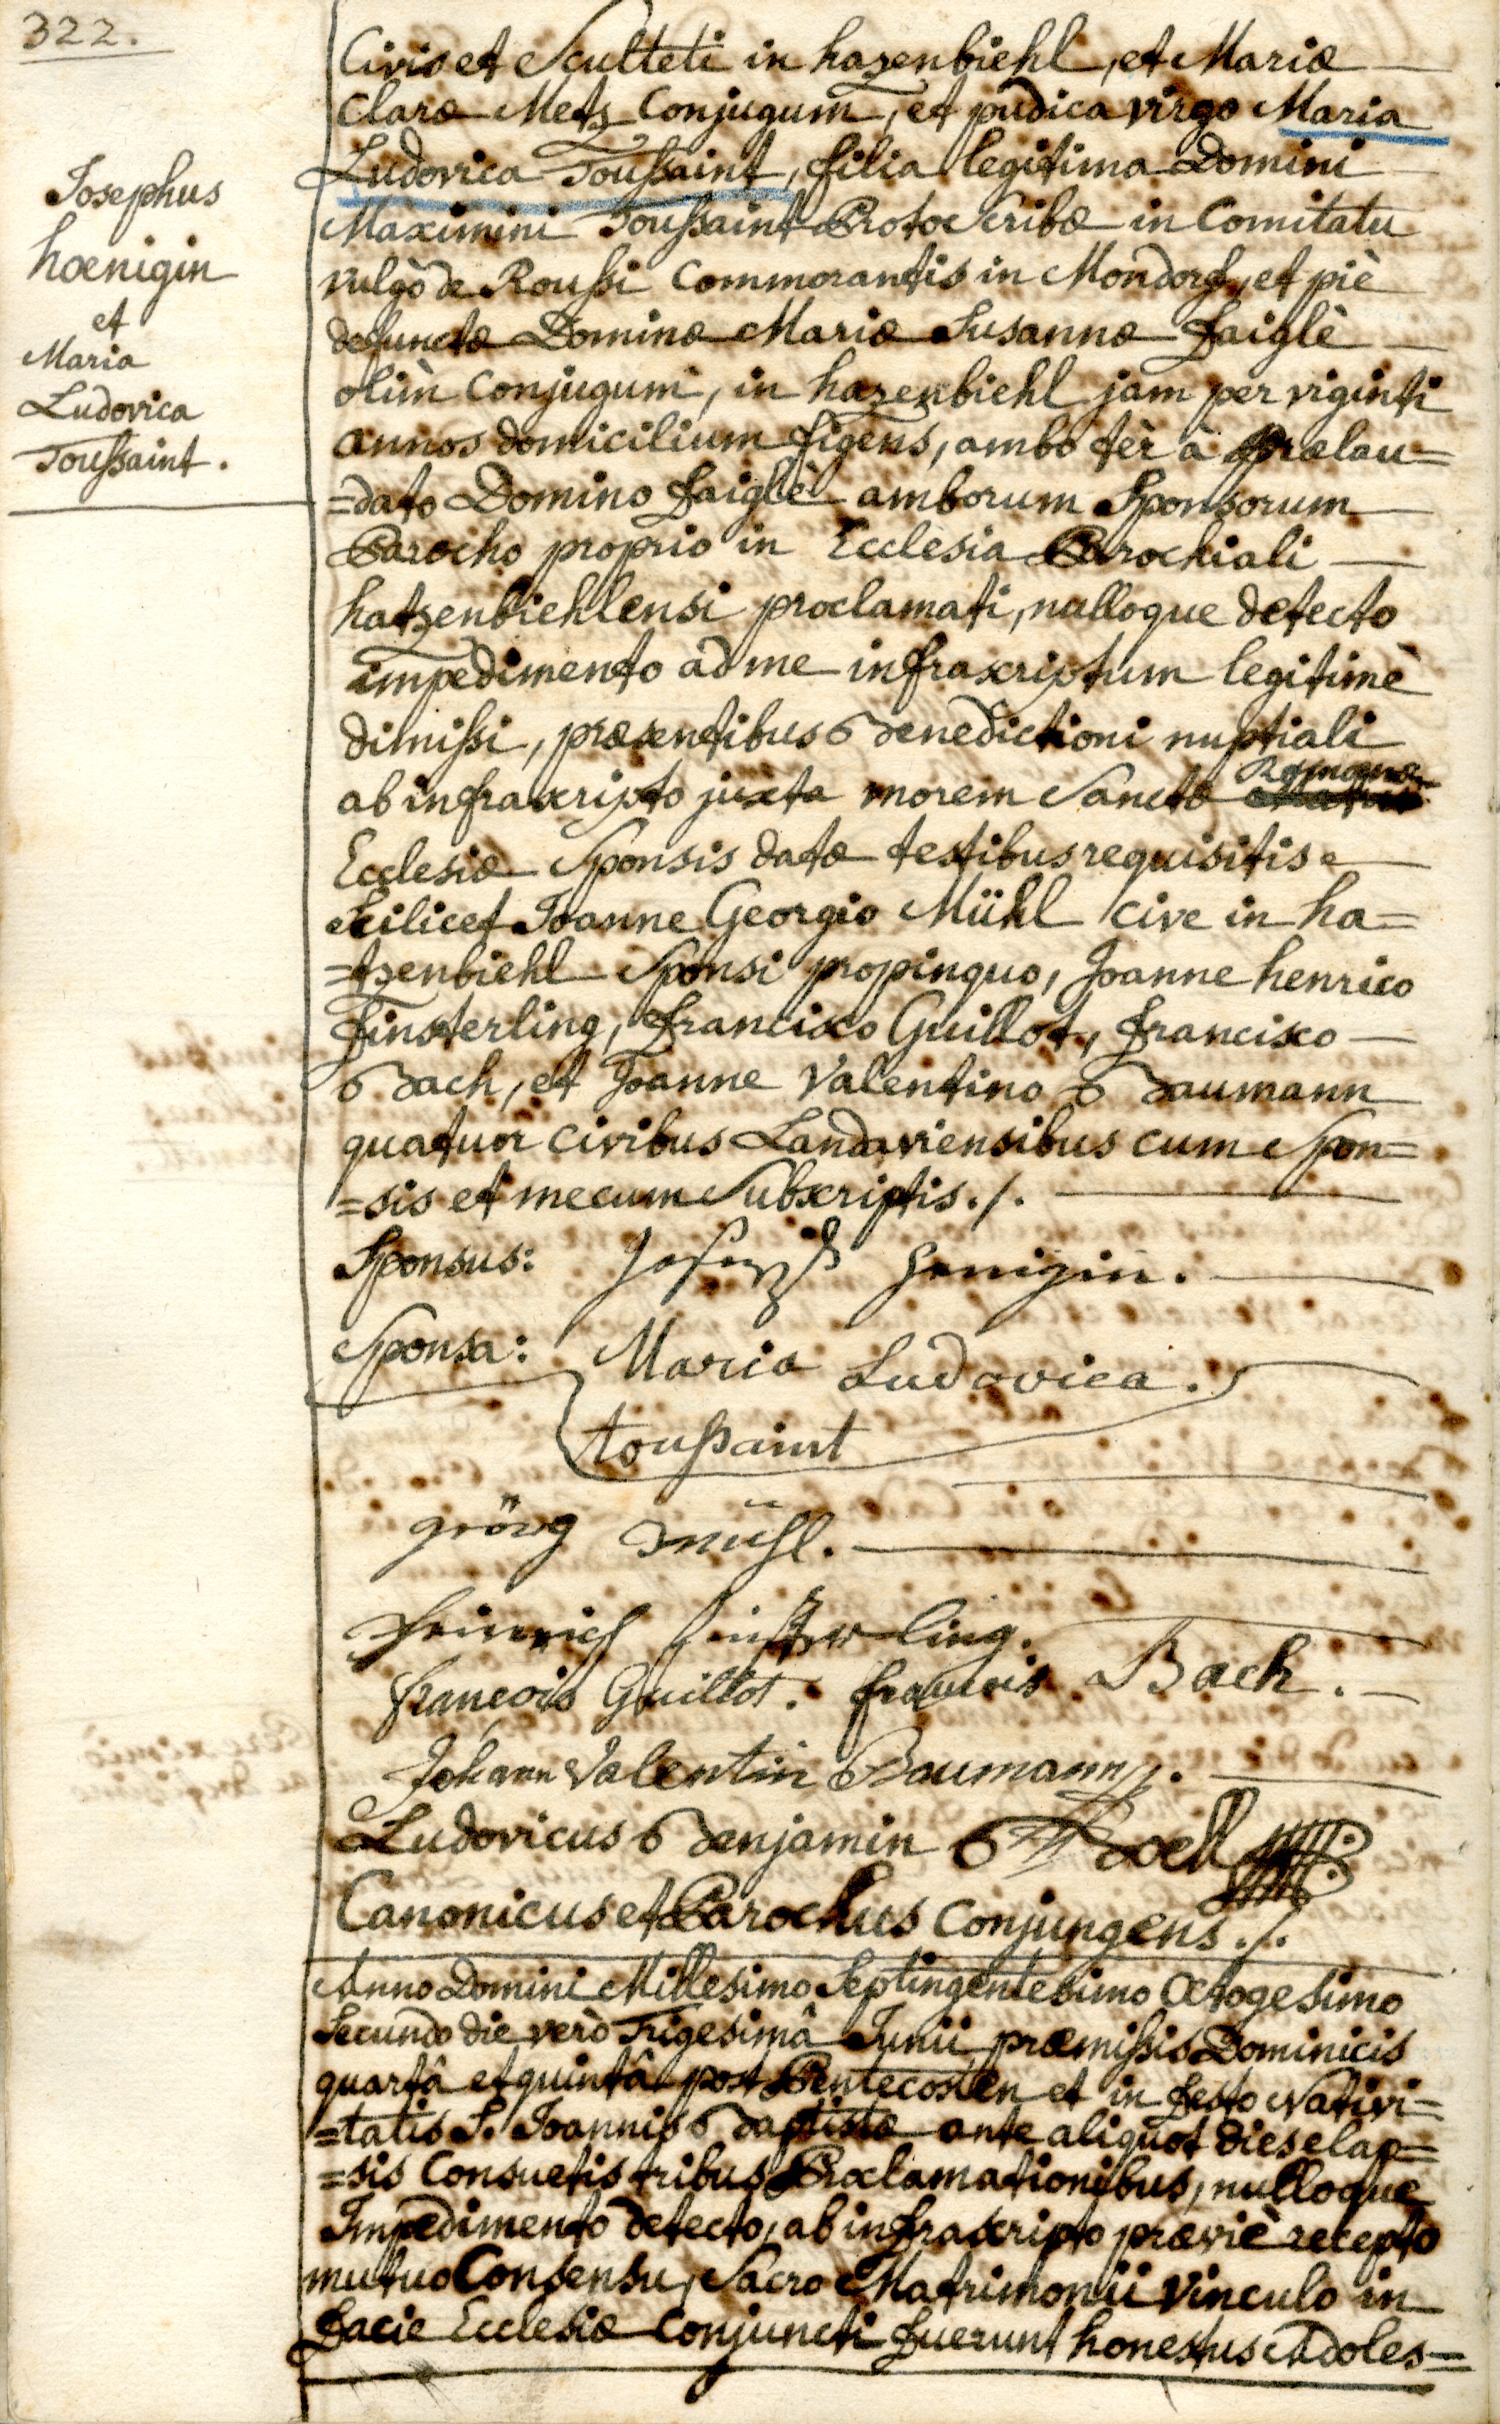 322.
Josephus
hoenigin
et
Maria
Ludovica
Toussaint.
Civis et Sculteti in hazenbiehl, et Mariæ
Claræ Metz Conjugum, et pudica virgo Maria
Ludovica Toussaint, filia legitima Domini
Maximini Toussaint ProtoScribæ in Comitatu
vulgò de Roussi Commorantis in Mondorf, et piè
defunctæ Dominæ Mariæ Susannæ Faiglè
olim Conjugum, in hazenbiehl jam per viginti
annos domicilium figens, ambo tèr à Prælau=
=dato Domino Faiglè amborum Sponsorum
Parocho proprio in Ecclesia Parochiali
hatzenbiehlensi proclamati, nulloque detecto
impedimento ad me infrascriptum legitimè
dimissi, præsentibus Benedictioni nuptiali
ab infrascripto juxta morem Sanctæ Romanæ
Ecclesiæ Sponsis datæ testibus requisitis
Scilicet Joanne Georgio Mühl Cive in ha=
=tzenbiehl Sponsi propinquo, Joanne henrico
Finsterling, Francisco Guillot, Francisco
Bach, et Joanne Valentino Baumann
quatuor Civibus Landaviensibus cum Spon=
=sis et mecum Subscriptis./.
Sponsus: Joseph Henigin.
Sponsa: Maria Ludovica.
toussaint
görg Mühl.
Heinrich Finsterling.
françois Guillot. francois Bach.
Johann Valentin Baumann.
Ludovicus Benjamin Boell
Canonicus et Parochus Conjungens./.
Anno Domini Millesimo Septingentesimo Octogesimo
Secundo die verò Trigesimâ Junii præmissis Dominicis
quartâ et quintâ post Pentecosten et in festo Nativi=
=tatis S. Joannis Baptistæ ante aliquot dies elap=
=sis Consuetis tribus Proclamationibus, nulloque
Impedimento detecto, ab infrascripto præviè recepto
mutuo Consensu, Sacro Matrimonii Vinculo in
Facie Ecclesiæ Conjuncti fuerunt honestus Adoles=